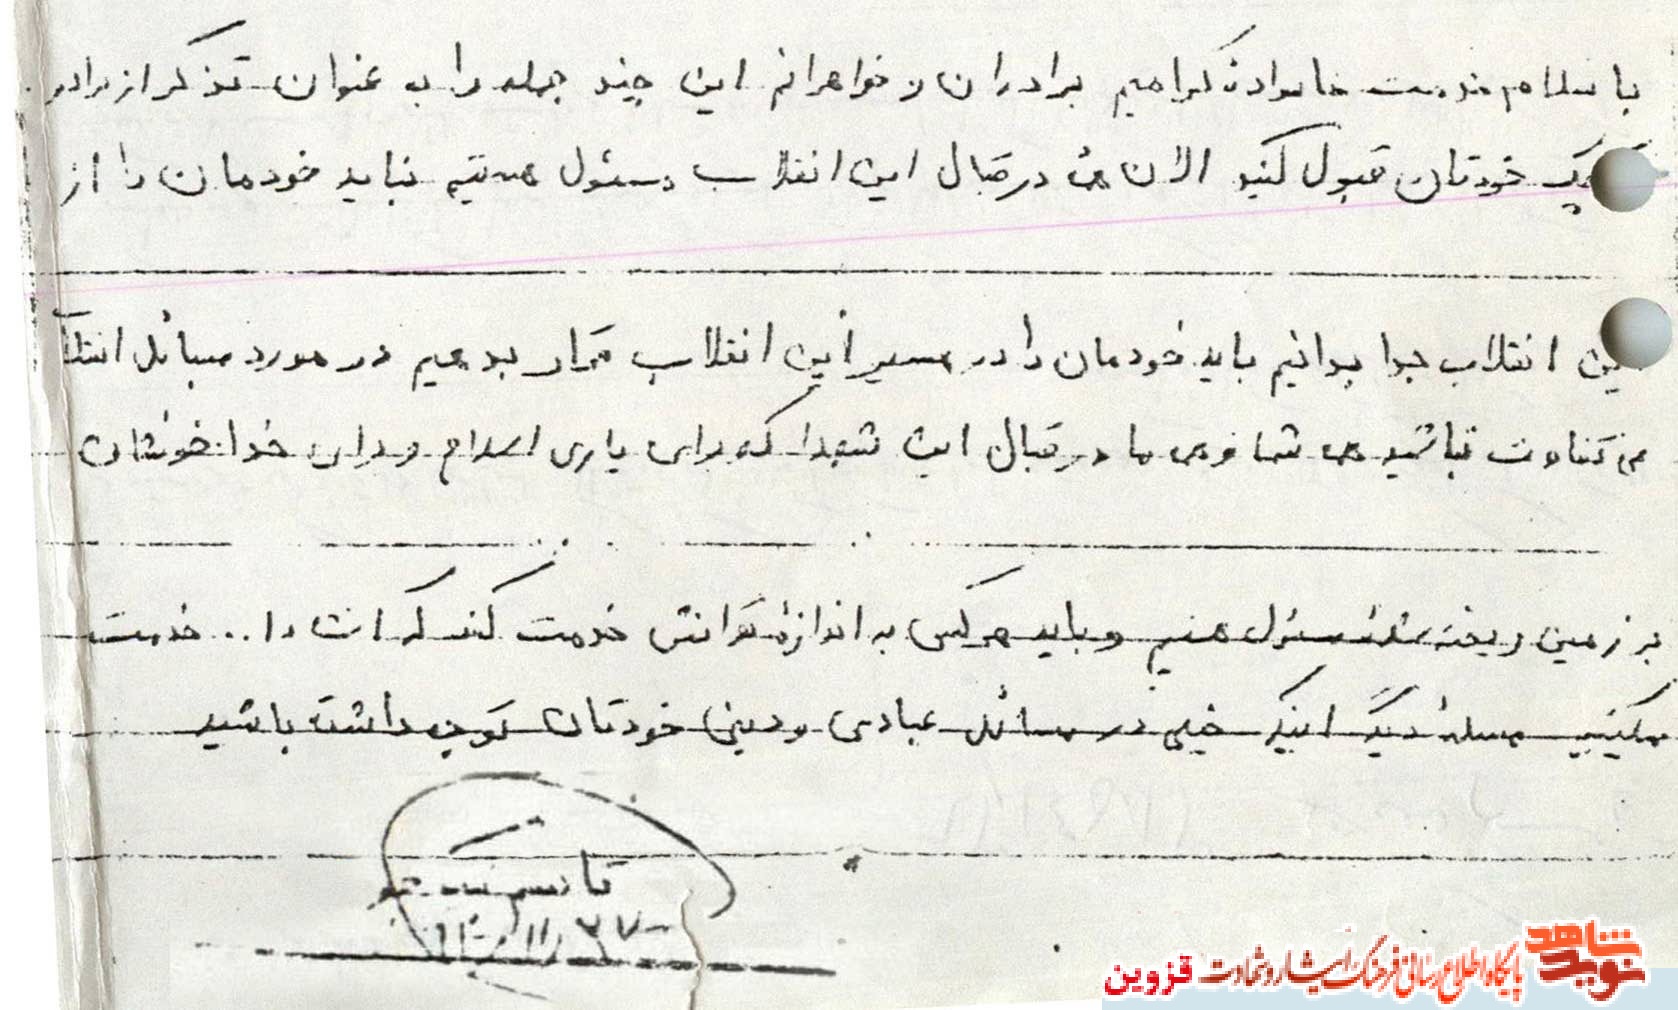 با سلام خدمت خانواده گرامیم برادران و خواهرانم این چند جمله را به عنوان تذکر از برادر
کوچک خودتان قبول کنید الان همه در قبال این انقلاب مسئول هستیم نباید خودمان را از
این انقلاب جدا بدانیم باید خودمان را در مسیر این انقلاب قرار بدهیم در مورد مسائل انقلاب
بی تفاوت نباشید هم شما و هم ما در قبال این شهدا که برای یاری اسلام و برای خدا خونشان
بر زمین ریخته شده مسئول هستیم و باید هر کسی به اندازه توانش خدمت کند که انشاءا.. خدمت
میکنید مسئله دیگر اینکه خیلی در مسائل عبادی و دینی خودتان توجه داشته باشید
قاسم
شاهد
نوید
پایگاه اطلاع رسانی فرهنگ ایثار و شهادت قزوین